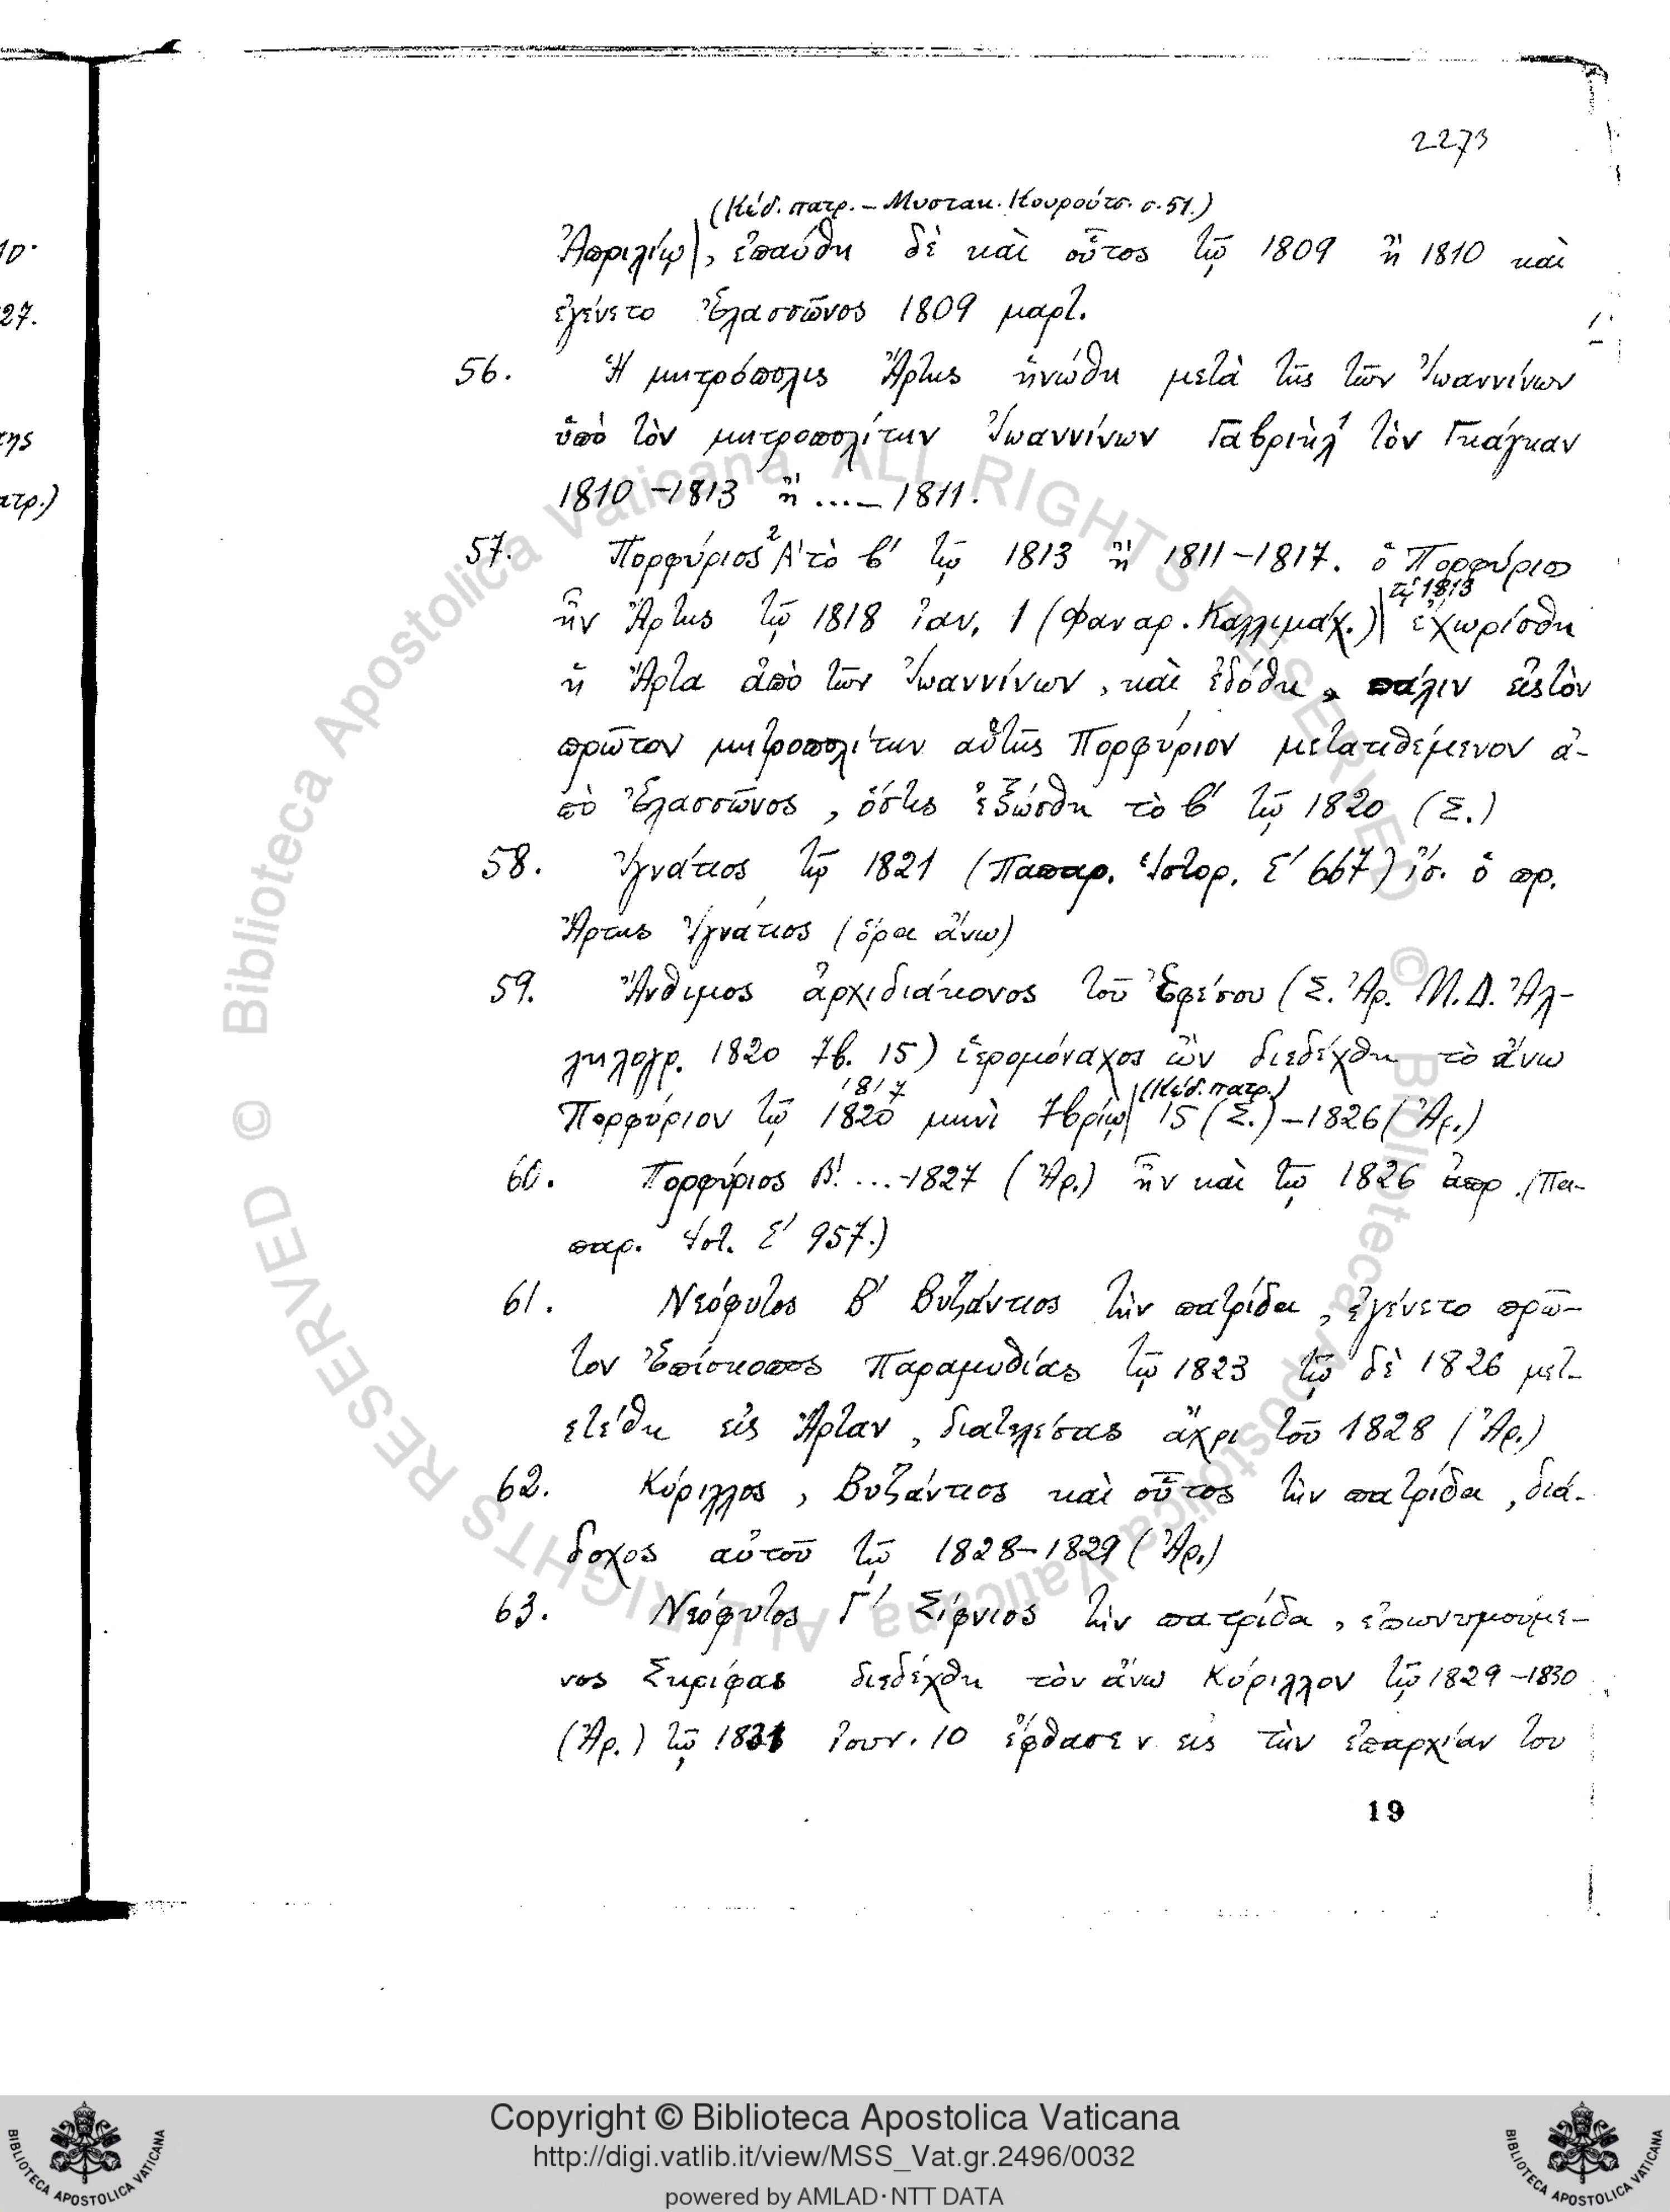 2273
(Κώδ. πατρ. – Μυστακ. Κουρούτσ. σ. 51.)
Ἀπριλίῳ, ἐπαύθη δὲ καὶ οὗτος τῷ 1809 ἢ 1810 καὶ
ἐγένετο Ἐλασσῶνος 1809 μαρτ.
56. Ἡ μητρόπολις Ἄρτης ἡνώθη μετὰ τῆς τῶν Ἰωαννίνων
ὑπὸ τὸν μητροπολίτην Ἰωαννίνων Γαβριὴλ¹ τὸν Γκάγκαν
1810–1813 ἢ ....– 1811.
57. Πορφύριος² Α' τὸ β' τῷ 1813 ἢ 1811–1817. ὁ Πορφύριος
ἦν Ἄρτης τῷ 1818 ἰαν. 1 (Φαναρ. Καλλιμάχ.) τῷ 1813 ἐχωρίσθη
ἡ Ἄρτα ἀπὸ τῶν Ἰωαννίνων, καὶ ἐδόθη πάλιν εἰς τὸν
πρῶτον μητροπολίτην αὐτῆς Πορφύριον μετατιθέμενον ἀ-
πὸ Ἐλασσῶνος, ὅστις ἐξώσθη τὸ β' τῷ 1820 (Σ.)
58. Ἰγνάτιος τῷ 1821 (Παπαρ. Ἱστορ. Ε' 667) ἴσ. ὁ πρ.
Ἄρτης Ἰγνάτιος (ὅρα ἄνω)
59. Ἄνθιμος ἀρχιδιάκονος τοῦ Ἐφέσου (Σ. Ἀρ. Μ.Δ. Ἀλ-
ληλογρ. 1820 7β. 15) ἱερομόναχος ὢν διεδέχθη τὸ ἄνω
1817 (Κώδ. πατρ.)
Πορφύριον τῷ 1820 μηνὶ 7βρίῳ 15 (Σ.) –1826 (Ἀρ.)
60. Πορφύριος Β'. ...–1827 (Ἀρ.) ἦν καὶ τῷ 1826 ἀπρ. (Πα-
παρ. Ἱστ. Ε' 957.)
61. Νεόφυτος Β' Βυζάντιος τὴν πατρίδα, ἐγένετο πρῶ-
τον Ἐπίσκοπος Παραμυθίας τῷ 1823 τῷ δὲ 1826 μετ-
ετέθη εἰς Ἄρταν, διατελέσας ἄχρι τοῦ 1828 (Ἀρ.)
62. Κύριλλος, Βυζάντιος καὶ οὗτος τὴν πατρίδα, διά-
δοχος αὐτοῦ τῷ 1828–1829 (Ἀρ.)
63. Νεόφυτος Γ' Σίφνιος τὴν πατρίδα, ἐπωνυμούμε-
νος Σκρίφας διεδέχθη τὸν ἄνω Κύριλλον τῷ 1829–1830
(Ἀρ.) τῷ 1831 ἰουν. 10 ἔφθασεν εἰς τὴν ἐπαρχίαν του
19
10.
27.
της
ατρ.)
© Biblioteca Apostolica Vaticana ALL RIGHTS RESERVED
© Biblioteca Apostolica Vaticana ALL RIGHTS RESERVED
Copyright © Biblioteca Apostolica Vaticana
http://digi.vatlib.it/view/MSS_Vat.gr.2496/0032
powered by AMLAD·NTT DATA
BIBLIOTECA APOSTOLICA VATICANA
BIBLIOTECA APOSTOLICA VATICANA